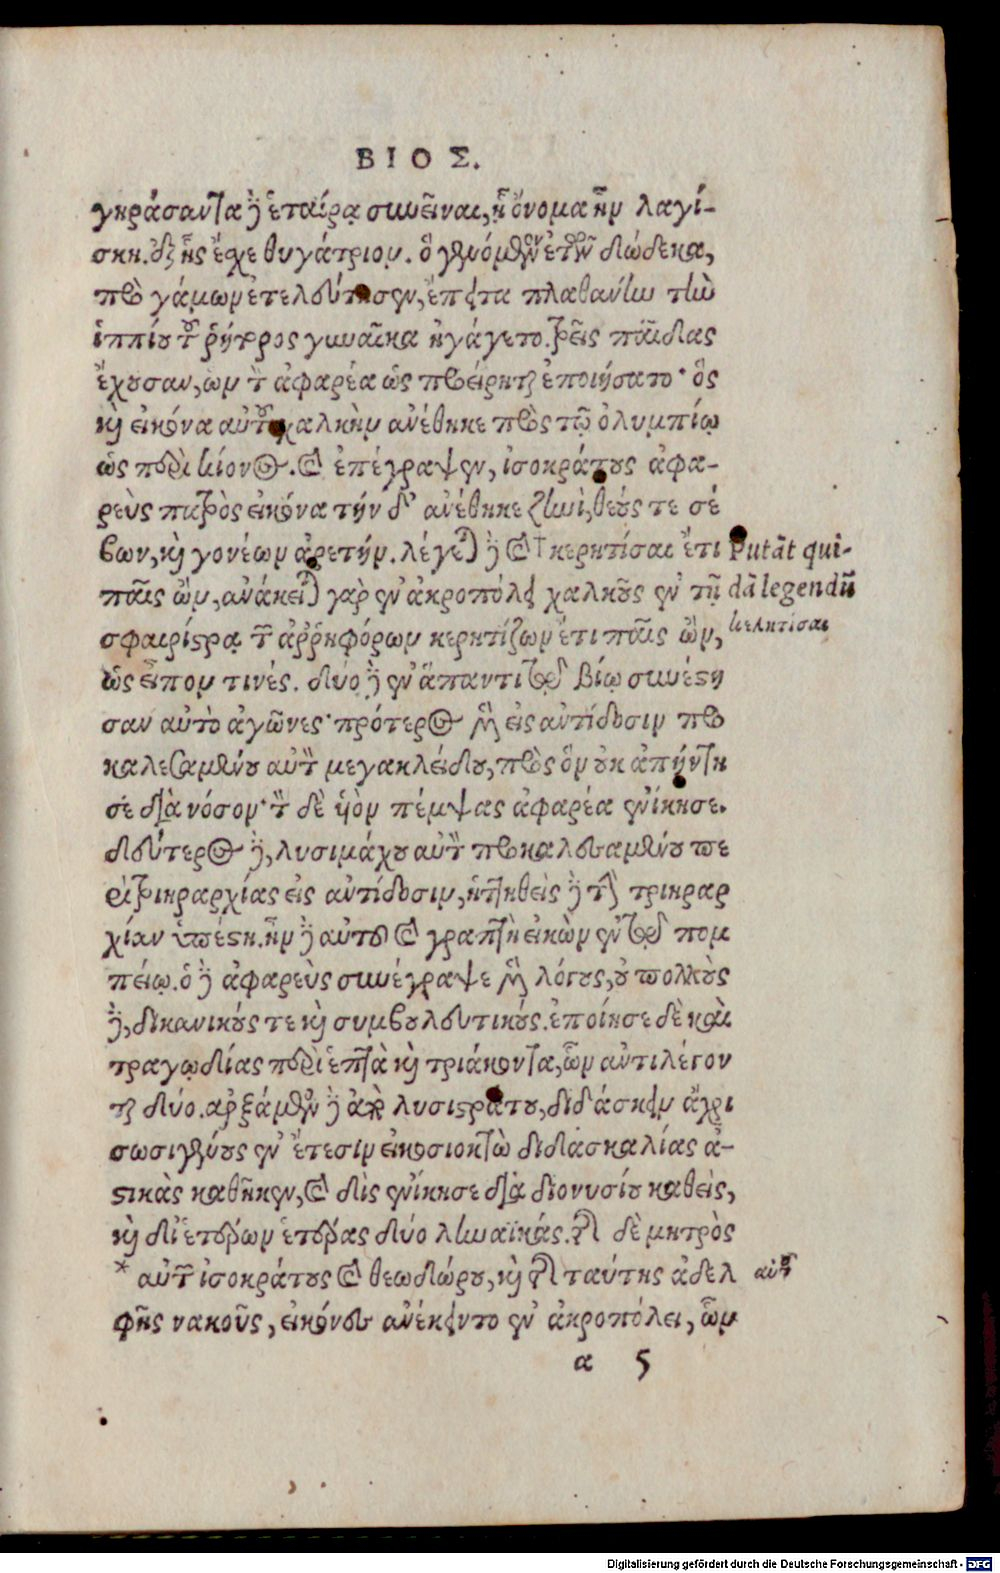 ΒΙΟΣ.
γηράσαντα δὲ ἑταίρᾳ συνεῖναι, ᾗ ὄνομα ἦν λαγί-
σκη. ἐξ ἧς ἔσχε θυγάτριον. ὃ γενόμενον ἐτῶν δώδεκα,
πρὸ γάμων ἐτελεύτησεν, ἔπειτα πλαθάνην τὴν
ἱππίου τοῦ ῥήτορος γυναῖκα ἠγάγετο. τρεῖς παῖδας
ἔχουσαν, ὧν τὸν ἀφαρέα ὡς προείρηται ἐποιήσατο· ὃς
καὶ εἰκόνα αὐτοῦ χαλκὴν ἀνέθηκε πρὸς τῷ ὀλυμπίῳ
ὡς ἐπὶ κίονος. καὶ ἐπέγραψεν, ἰσοκράτους ἀφα-
ρεὺς πατρὸς εἰκόνα τήνδ' ἀνέθηκε ζηνὶ, θεούς τε σέ
βων, καὶ γονέων ἀρετήν. λέγεται δὲ καὶ † κερητίσαι ἔτι
παῖς ὤν, ἀνάκειται γὰρ ἐν ἀκροπόλει χαλκοῦς ἐν τῇ
σφαιρίστρᾳ τῶν ἀῤῥηφόρων κερητίζων ἔτι παῖς ὤν,
ὡς εἶπον τινές. δύο δὲ ἐν ἅπαντι τῷ βίῳ συνέστη
σαν αὐτὸ ἀγῶνες· πρότερος μὲν εἰς ἀντίδοσιν προ
καλεσαμένου αὐτὸν μεγακλείδου, πρὸς ὃν οὐκ ἀπήντη
σε διὰ νόσον· τὸν δὲ υἱὸν πέμψας ἀφαρέα ἐνίκησε.
δεύτερος δὲ, λυσιμάχου αὐτὸν προκαλεσαμένου πε
ρὶ τριηραρχίας εἰς ἀντίδοσιν, ἡττηθεὶς δὲ τὴν τριηραρ
χίαν ὑπέστη. ἦν δὲ αὐτοῦ καὶ γραπτὴ εἰκὼν ἐν τῷ πομ
πείῳ. ὁ δὲ ἀφαρεὺς συνέγραψε μὲν λόγους, οὐ πολλοὺς
δὲ, δικανικούς τε καὶ συμβουλευτικούς. ἐποίησε δὲ καὶ
τραγῳδίας περὶ ἑπτὰ καὶ τριάκοντα, ὧν ἀντιλέγον
ται δύο. ἀρξάμενον δὲ ἀπὸ λυσιστράτου, διδάσκειν ἄχρι
σωσιγένους ἐν ἔτεσιν εἰκοσιοκτὼ διδασκαλίας ἀ-
στικὰς καθῆκεν, καὶ δὶς ἐνίκησε διὰ διονυσίου καθεὶς,
καὶ δι' ἑτέρων ἑτέρας δύο ληναϊκάς. τῆς δὲ μητρὸς
* αὐτῶν ἰσοκράτους καὶ θεωδώρου, καὶ τῆς ταύτης ἀδελ
φῆς νακοῦς, εἰκόνες ἀνέκειντο ἐν ἀκροπόλει, ὧν
α 5
Putāt qui-
dā legendū
κελητίσαι
αὐτοῦ
Digitalisierung gefördert durch die Deutsche Forschungsgemeinschaft - DFG